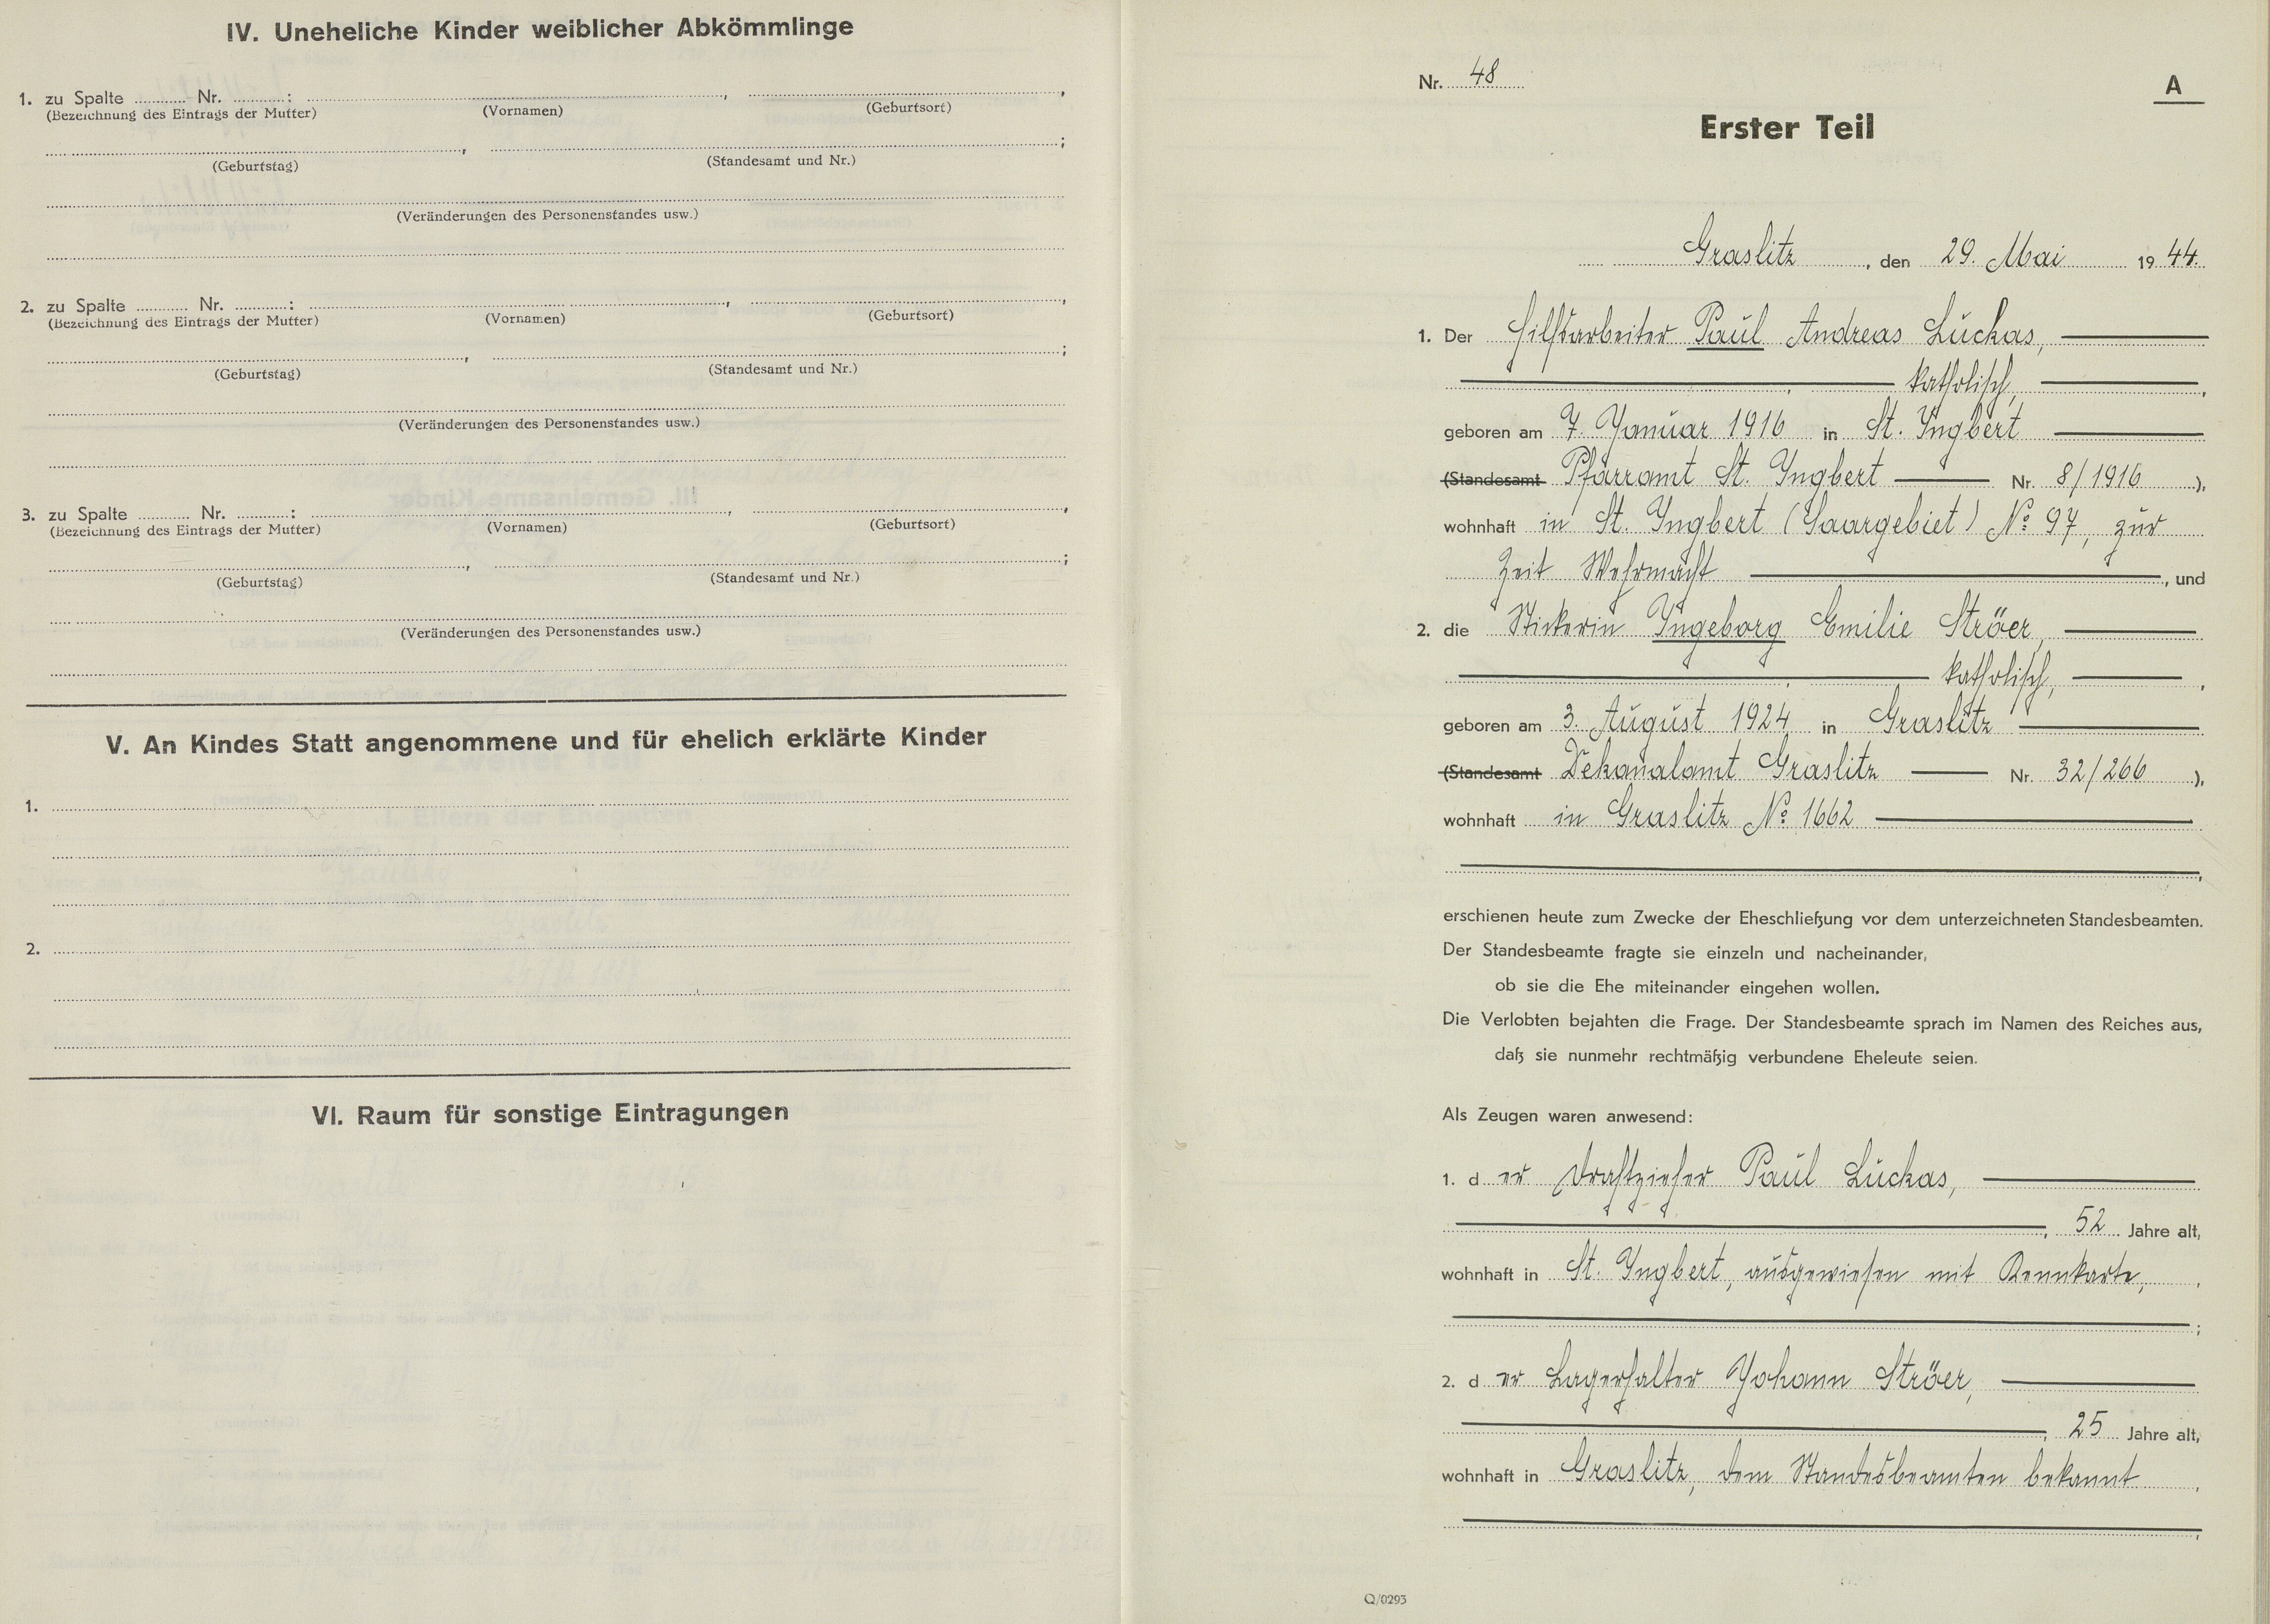 IV. Uneheliche Kinder weiblicher Abkömmlinge
1. zu Spalte ........... Nr. ...........: ..........................., ...........................,
(Bezeichnung des Eintrags der Mutter) (Vornamen) (Geburtsort)
..........................., ...........................;
(Geburtstag) (Standesamt und Nr.)
(Veränderungen des Personenstandes usw.)
2. zu Spalte ........... Nr. ...........: ..........................., ...........................,
(Bezeichnung des Eintrags der Mutter) (Vornamen) (Geburtsort)
..........................., ...........................;
(Geburtstag) (Standesamt und Nr.)
(Veränderungen des Personenstandes usw.)
3. zu Spalte ........... Nr. ...........: ..........................., ...........................,
(Bezeichnung des Eintrags der Mutter) (Vornamen) (Geburtsort)
..........................., ...........................;
(Geburtstag) (Standesamt und Nr.)
(Veränderungen des Personenstandes usw.)
V. An Kindes Statt angenommene und für ehelich erklärte Kinder
1.
2.
VI. Raum für sonstige Eintragungen
Nr. 48
A
Erster Teil
Graslitz, den 29. Mai 1944.
1. Der Hilfsarbeiter Paul Andreas Luckas,
katholisch,
geboren am 7. Januar 1916 in St. Ingbert
(Standesamt Pfarramt St. Ingbert Nr. 8/1916 ),
wohnhaft in St. Ingbert (Saargebiet) No 97, zur
Zeit Wehrmacht, und
2. die Stickerin Ingeborg Emilie Ströer,
katholisch,
geboren am 3. August 1924 in Graslitz
(Standesamt Dekanalamt Graslitz Nr. 32/266 ),
wohnhaft in Graslitz No 1662
erschienen heute zum Zwecke der Eheschließung vor dem unterzeichneten Standesbeamten.
Der Standesbeamte fragte sie einzeln und nacheinander,
ob sie die Ehe miteinander eingehen wollen.
Die Verlobten bejahten die Frage. Der Standesbeamte sprach im Namen des Reiches aus,
daß sie nunmehr rechtmäßig verbundene Eheleute seien.
Als Zeugen waren anwesend:
1. d er Drahtzieher Paul Luckas,
, 52 Jahre alt,
wohnhaft in St. Ingbert, ausgewiesen mit Kennkarte,
;
2. d er Lagerhalter Johann Ströer,
, 25 Jahre alt,
wohnhaft in Graslitz, dem Standesbeamten bekannt
Q/0293